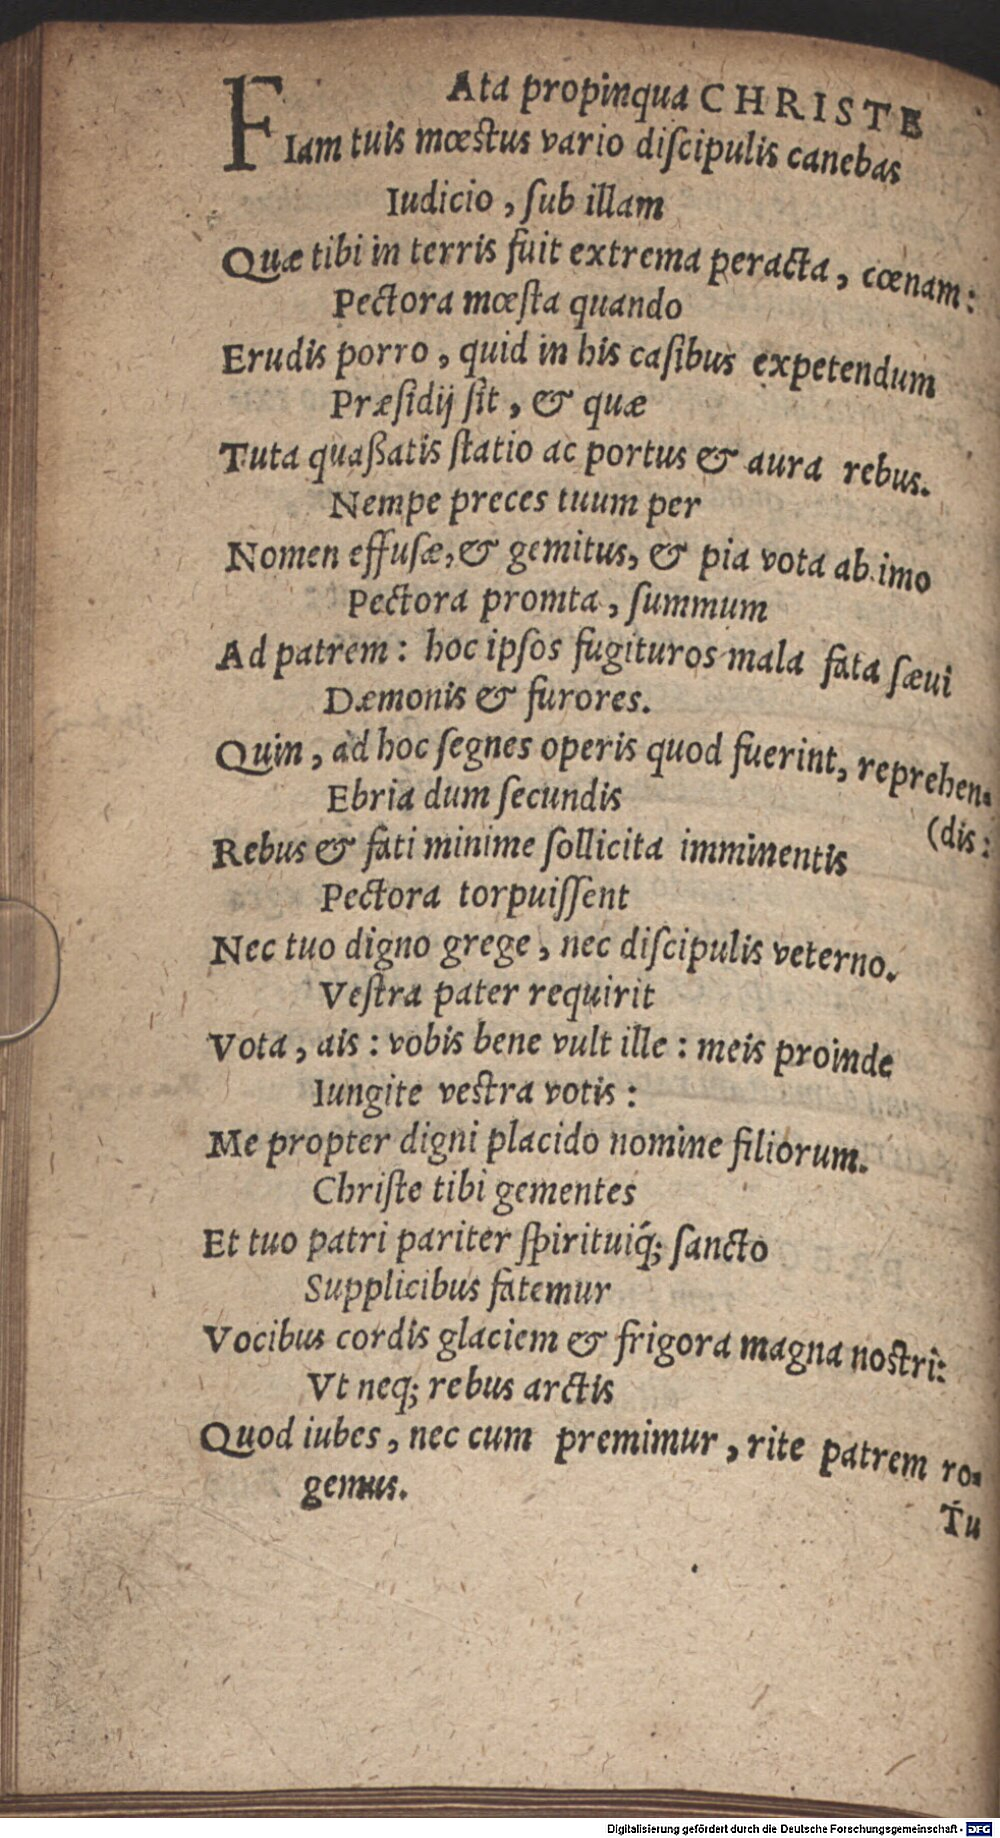 FAta propinqua CHRISTE
Iam tuis mœstus vario diſcipulis canebas
Iudicio, ſub illam
Quæ tibi in terris fuit extrema peracta, cœnam:
Pectora mœſta quando
Erudis porro, quid in his caſibus expetendum
Præſidij ſit, & quæ
Tuta quaßatis ſtatio ac portus & aura rebus.
Nempe preces tuum per
Nomen effuſæ, & gemitus, & pia vota ab imo
Pectora promta, ſummum
Ad patrem: hoc ipſos fugituros mala fata ſæui
Dæmonis & furores.
Quin, ad hoc ſegnes operis quod fuerint, reprehen-
(dis:
Ebria dum ſecundis
Rebus & fati minime ſollicita imminentis
Pectora torpuiſſent
Nec tuo digno grege, nec diſcipulis veterno.
Veſtra pater requirit
Vota, ais: vobis bene vult ille: meis proinde
Iungite vestra votis:
Me propter digni placido nomine filiorum.
Chriſte tibi gementes
Et tuo patri pariter ſpirituiq́; ſancto
Supplicibus fatemur
Vocibus cordis glaciem & frigora magna noſtri:
Vt neq; rebus arctis
Quod iubes, nec cum premimur, rite patrem ro-
gemus.
Tu
Digitalisierung gefördert durch die Deutsche Forschungsgemeinschaft - DFG